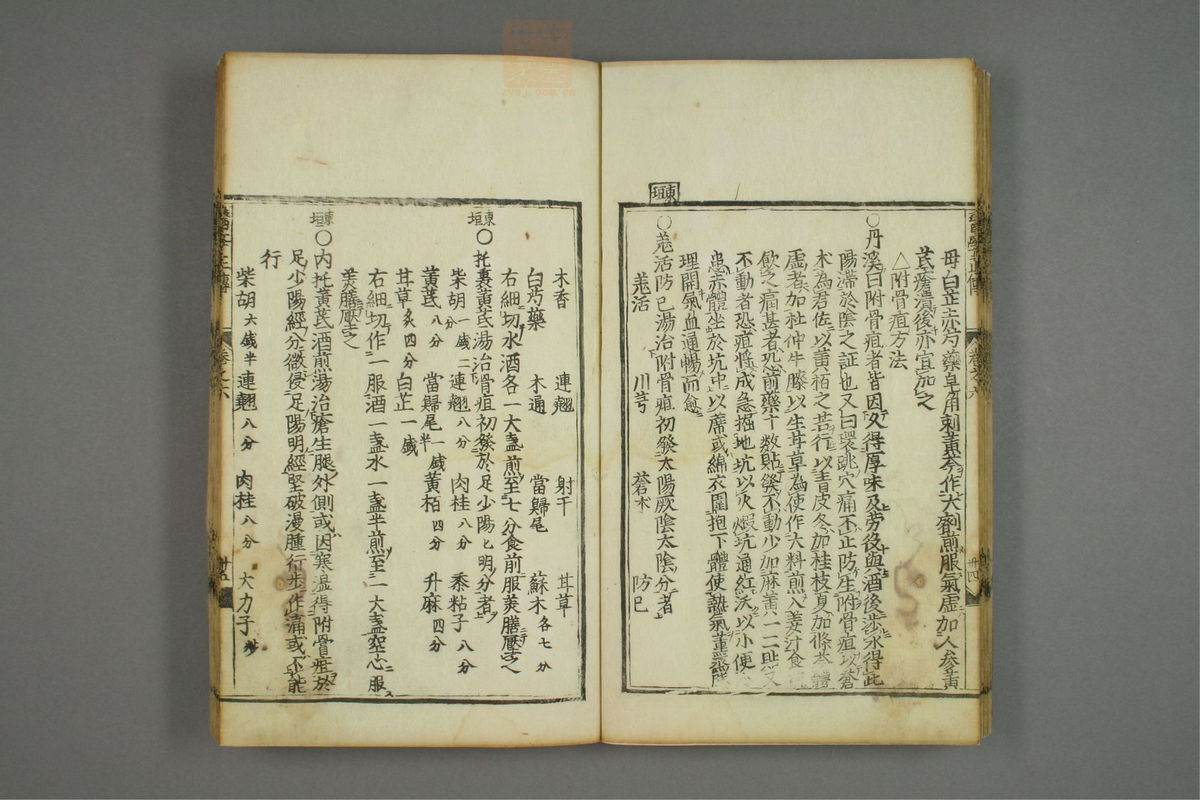 母白芷赤芍藥皂角刺黃芩作大劑煎服氣虛加人參黃
芪瘡潰後亦宜加之
△附骨疽方法
○丹溪曰附骨疽者皆因久得厚味及勞役與酒後涉水得此
陽滯於陰之証也又曰環跳穴痛不止防生附骨疽以蒼
术為君佐以黃栢之苦行以青皮冬加桂枝夏加條芩體
虛者加杜仲牛膝以生甘草為使作大料煎入姜汁食
飲之痛甚者恐前藥十數貼發不動少加麻黃一二貼又
不動者恐疽將成急掘地坑以火煆坑通紅沃以小便
患赤體坐於坑中以蓆或綿衣圍抱下體使熱氣薰蒸
理開氣血通暢而愈
東垣
○羌活防已湯治附骨疽初發太陽厥陰太陰分者
羌活 川芎 蒼术 防已
木香 連翹 射干 甘草
白芍藥 木通 當歸尾 蘇木各七分
右細切水酒各一大盞煎至七分食前服美膳壓之
東垣
○托裏黃芪湯治骨疽初發於足少陽匕明分者
柴胡一錢二分 連翹八分 肉桂八分 黍粘子八分
黃芪八分 當歸尾一錢半 黃栢四分 升麻四分
甘草炙四分 白芷一錢
右細切作一服酒一盞水一盞半煎至一大盞空心服
美膳壓之
東垣
○內托黃芪酒煎湯治瘡生腿外側或因寒濕得附骨疽於
足少陽經分微侵足陽明經堅破漫腫行步作痛或不能
行
柴胡六錢半 連翹八分 肉桂八分 大力子炒
卷之六
卅四
卅五